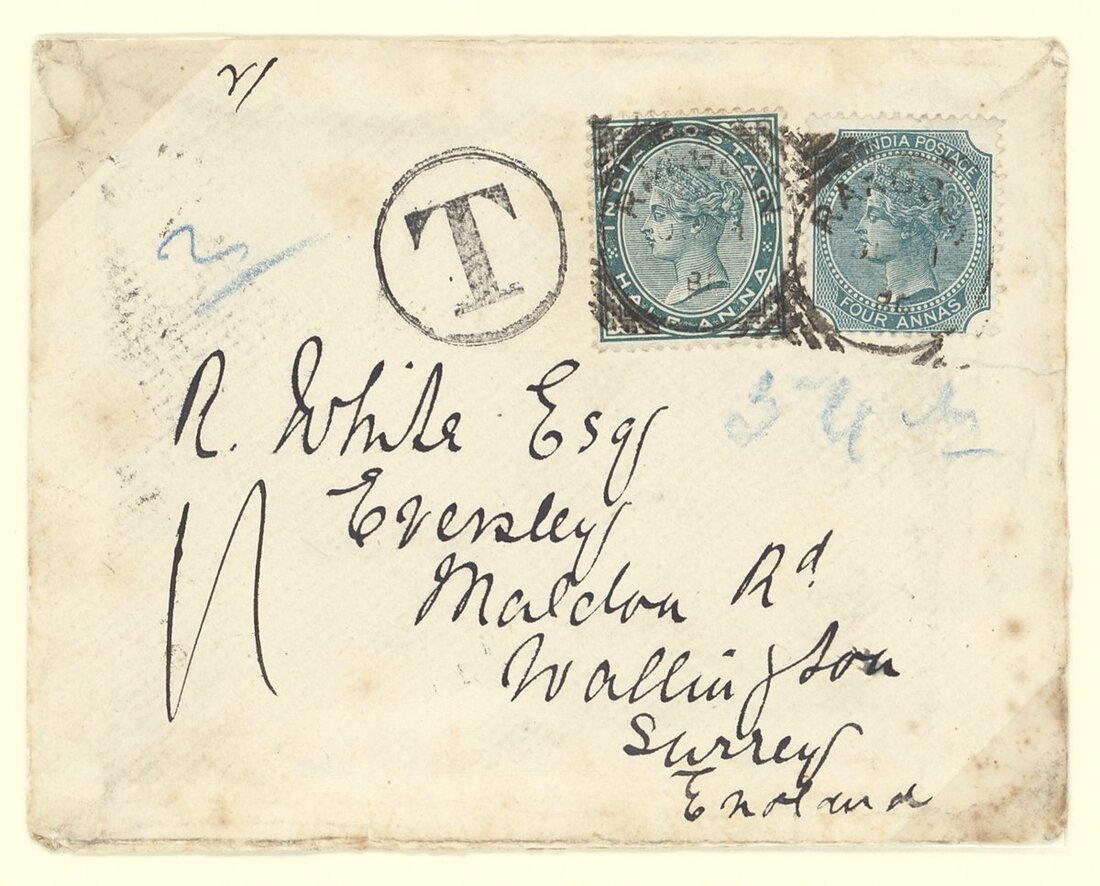 2/
T
INDIA POSTAGE
HALF ANNA
INDIA POSTAGE
FOUR ANNAS
R. White Esq
Eversley
Maldon Rd
Wallington
Surrey
England